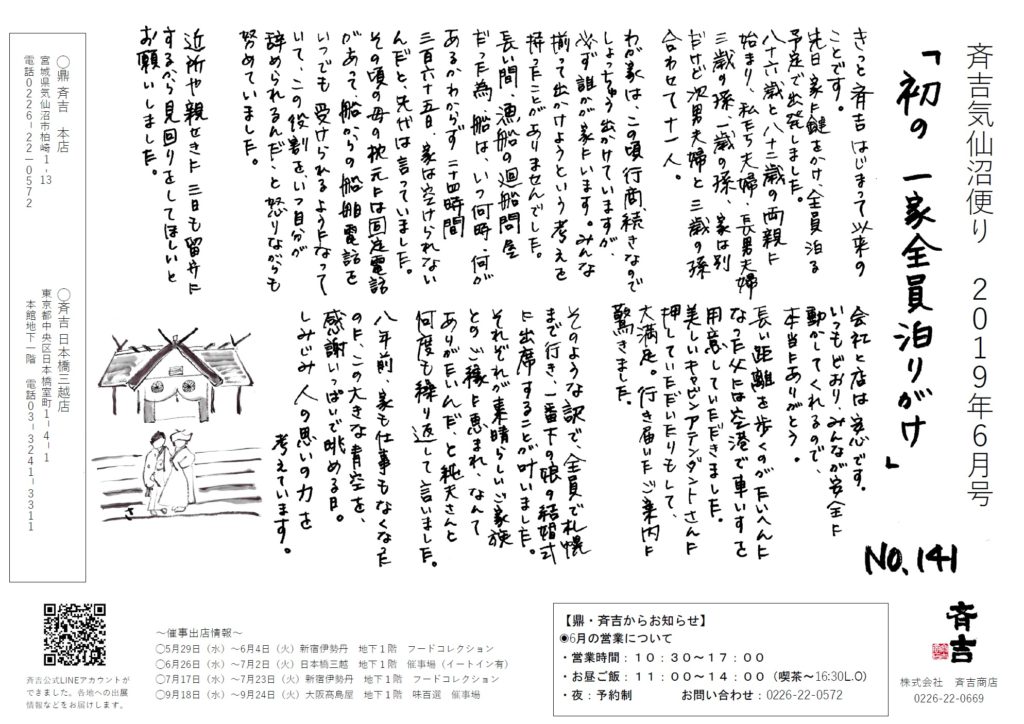 斉吉気仙沼便り　２０１９年６月号
「初の　一家全員泊りがけ」
NO,141
きっと斉吉はじまって以来の
ことです。
先日家に鍵をかけ、全員泊る
予定で出発しました。
八十六歳と八十二歳の両親に
始まり、私たち夫婦、長男夫婦
三歳の孫、一歳の孫、家は別
だけど次男夫婦と三歳の孫
合わせて十一人。
わが家は、この頃行商続きなので
しょっちゅう出かけていますが、
必ず誰かが家にいます。みんな
揃って出かけようという考えを
持ったことがありませんでした。
長い間、漁船の廻船問屋
だった為、船は、いつ何時、何が
あるかわからず二十四時間
三百六十五日　家は空けられない
んだと先代は言っていました。
その頃の母の枕元には固定電話
があって、船からの船舶電話を
いつでも受けられるようになって
いて、この役割をいつ自分が
辞められるんだ、と怒りながらも
努めていました。
近所や親せきに三日も留守に
するから見回りをしてほしいと
お願いしました。
会社と店は安心です。
いつもどおり、みんなが安全に
動かしてくれるので、
本当にありがとう。
長い距離を歩くのがたいへんに
なった父には空港で車いすを
用意していただきました。
美しいキャビンアテンダントさんに
押していただいたりもして、
大満足。行き届いたご案内に
驚きました。
そのような訳で、全員で札幌
まで行き、一番下の娘の結婚式
に出席することが叶いました。
それぞれが素晴らしいご家族
とのご縁に恵まれ、なんて
ありがたいんだ、と純夫さんと
何度も繰り返して言いました。
八年前、家も仕事もなくなった
のに、この大きな青空を、
感謝いっぱいで眺める日。
しみじみ　人の思いの力を
考えています。
さ
◯鼎 斉吉　本店
宮城県気仙沼市柏崎１-13
電話0226-22-0572
◯斉吉 日本橋三越店
東京都中央区日本橋室町1-4-1
本館地下一階　電話03-3241-3311
斉吉公式LINEアカウントが
できました。各地への出展
情報などをお届けします。
～催事出店情報～
◯5月29日（水）～6月4日（火）新宿伊勢丹　地下１階　フードコレクション
◯6月26日（水）～7月2日（火）日本橋三越　地下１階　催事場（イートイン有）
◯7月17日（水）～7月23日（火）新宿伊勢丹　地下１階　フードコレクション
◯9月18日（水）～9月24日（火）大阪髙島屋　地下１階　味百選　催事場
【鼎・斉吉からお知らせ】
◉6月の営業について
・営業時間：１０：３０～１７：００
・お昼ご飯：１１：００～１４：００（喫茶～16:30L.O）
・夜：予約制　　　お問い合わせ：0226-22-0572
斉吉
株式会社　斉吉商店
0226-22-0669